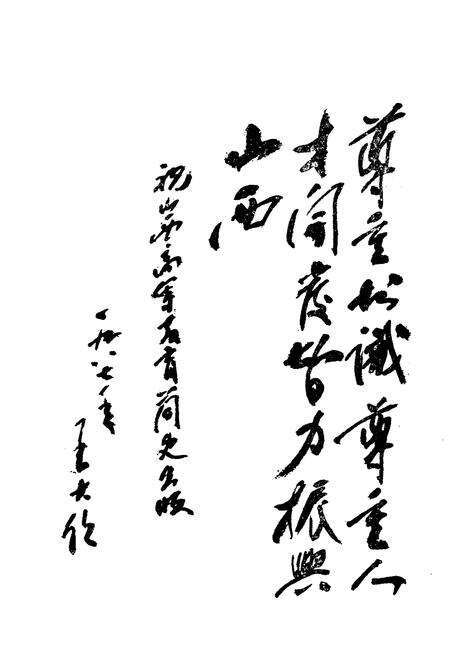 尊重知識尊重人
才開發智力振興
山西
祝山西高等教育简史出版
一九八七年
王大任